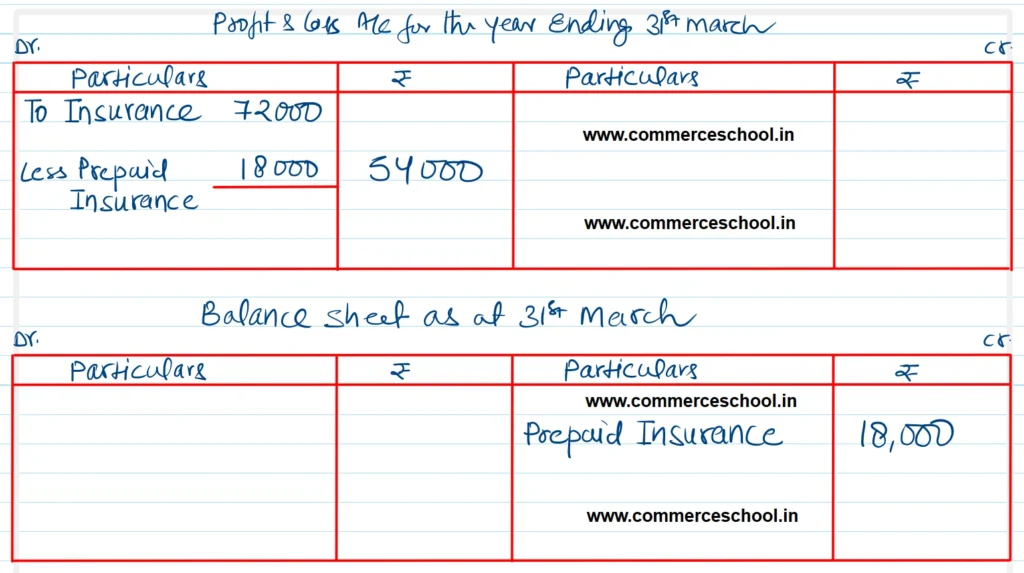 Profit & Loss A/c for the year Ending 31st march
Dr. Cr.
Particulars ₹ Particulars ₹
To Insurance 72000
www.commerceschool.in
Less Prepaid 18000 54000
Insurance
www.commerceschool.in
Balance sheet as at 31st March
Dr. Cr.
Particulars ₹ Particulars ₹
www.commerceschool.in
Prepaid Insurance 18,000
www.commerceschool.in